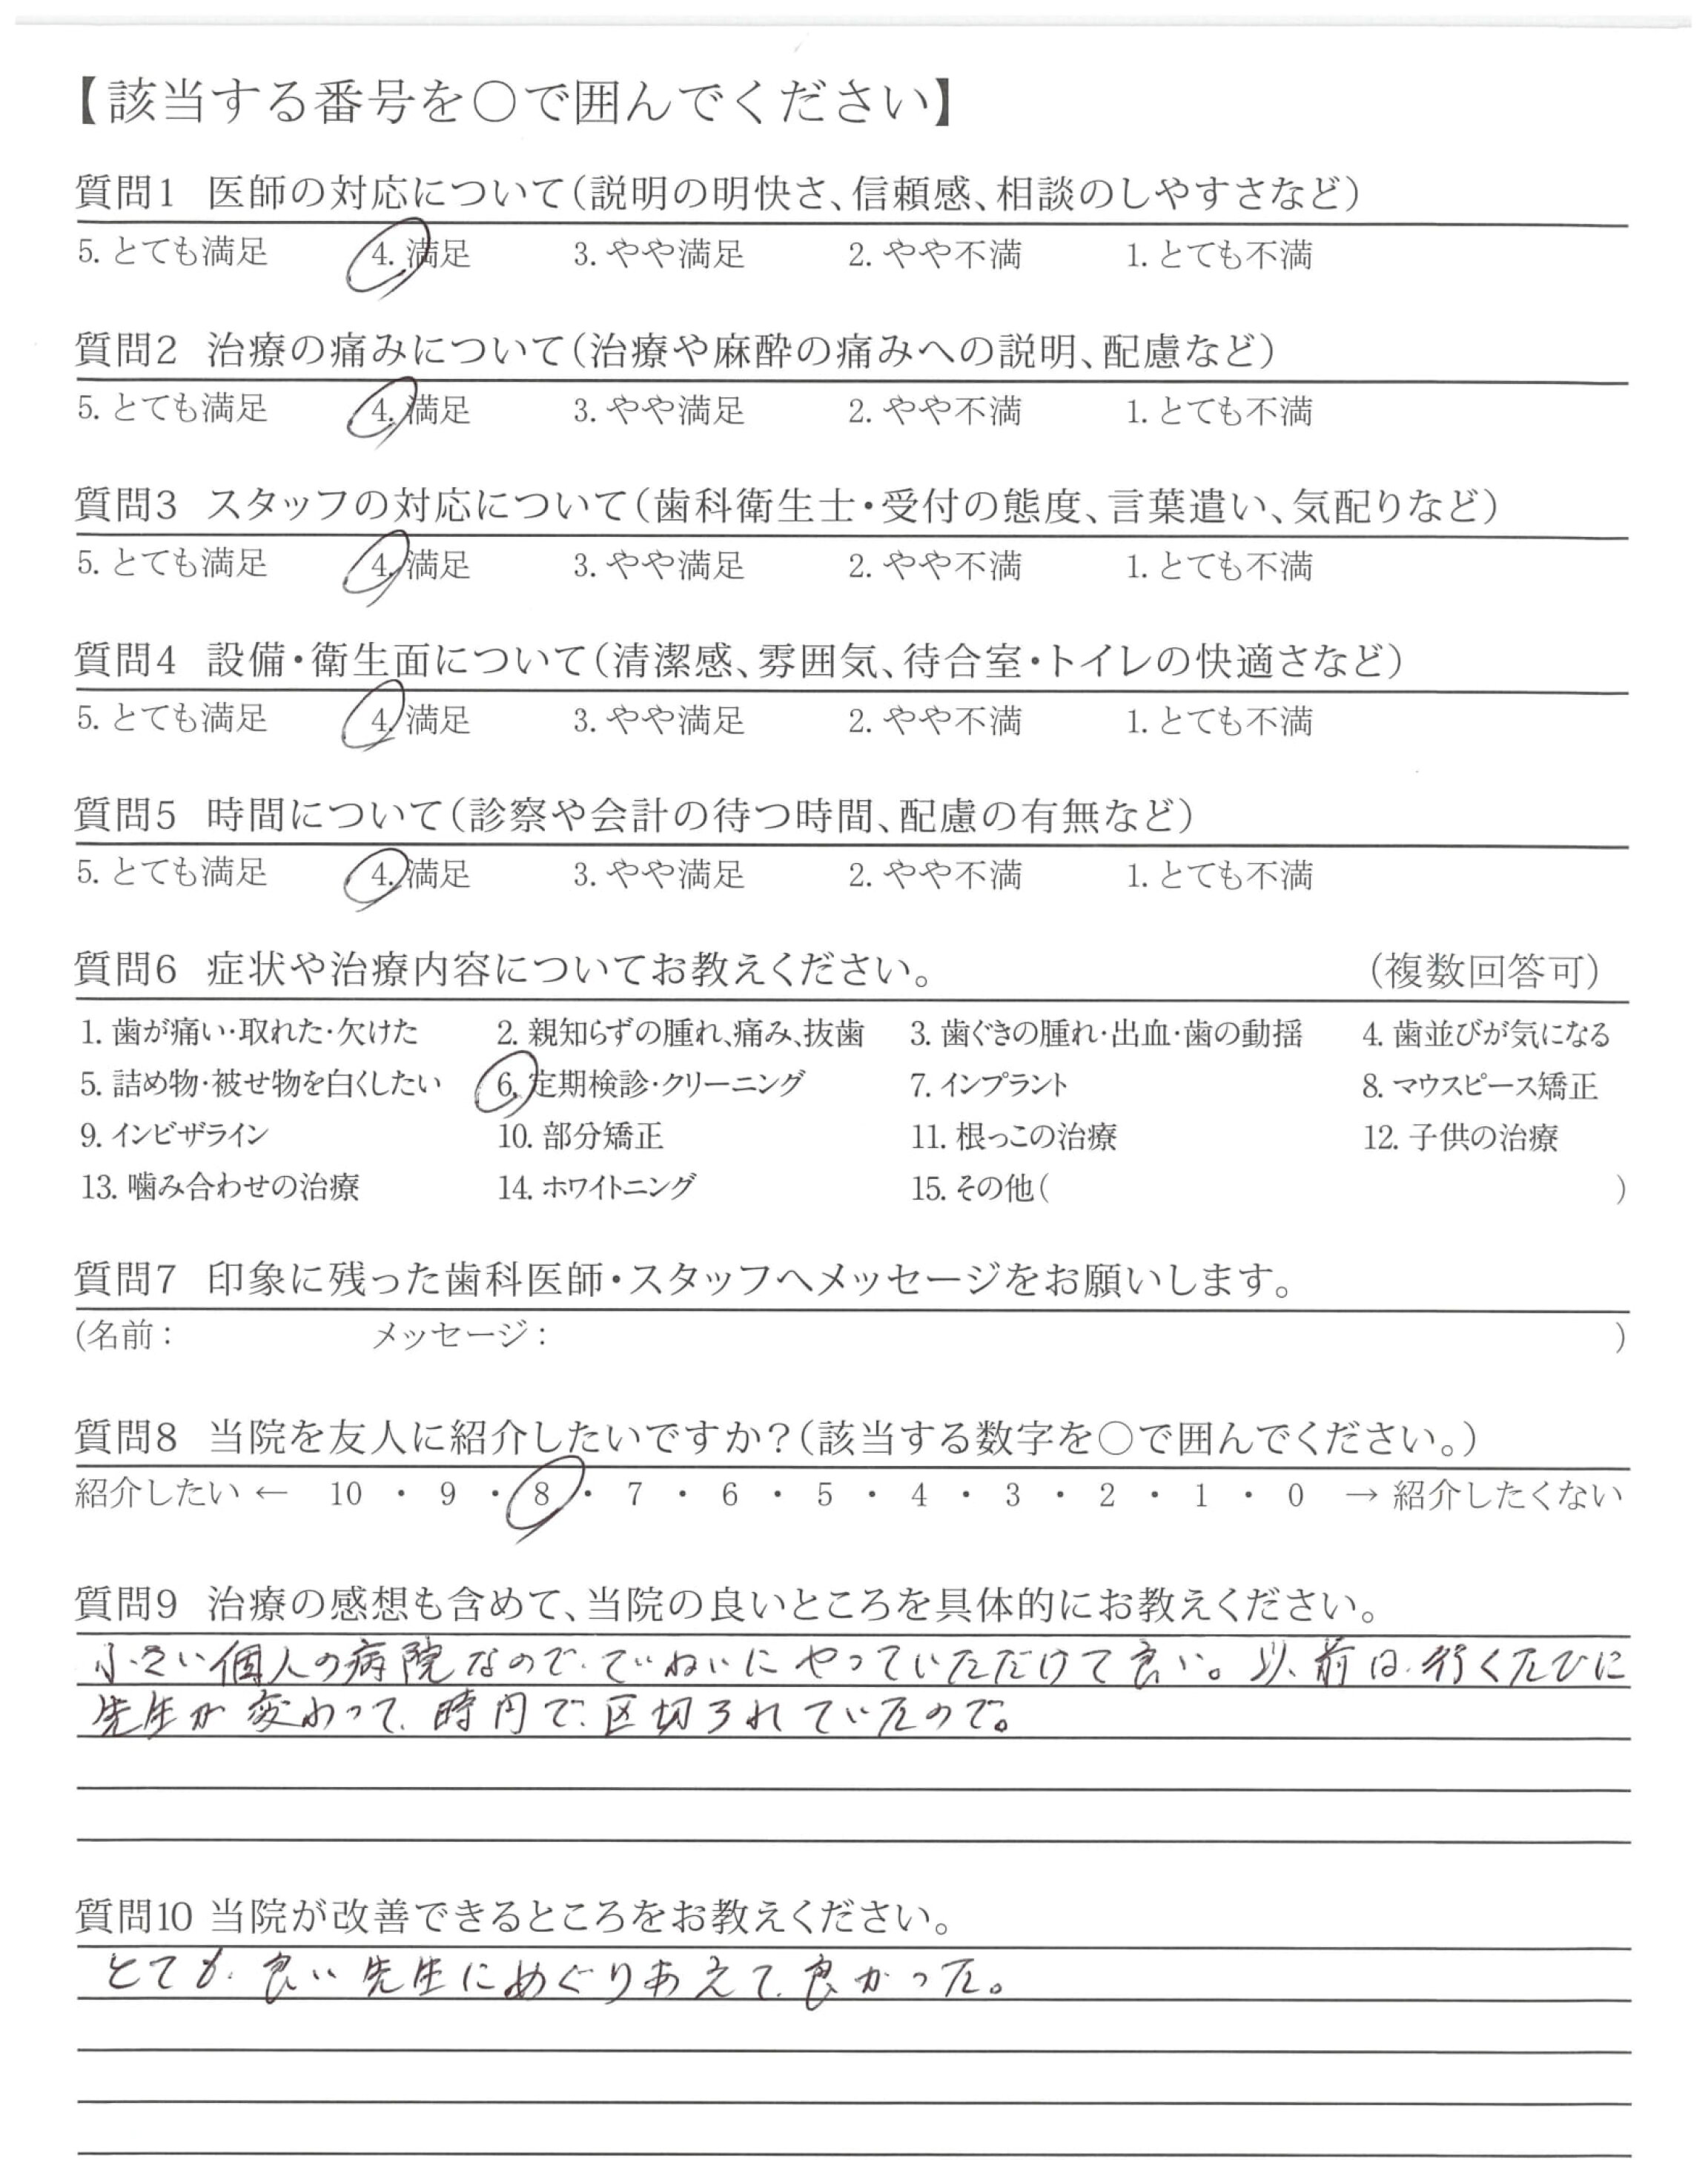 【該当する番号を○で囲んでください】
質問1 医師の対応について(説明の明快さ、信頼感、相談のしやすさなど)
5. とても満足 4. 満足 3. やや満足 2. やや不満 1. とても不満
質問2 治療の痛みについて(治療や麻酔の痛みへの説明、配慮など)
5. とても満足 4. 満足 3. やや満足 2. やや不満 1. とても不満
質問3 スタッフの対応について(歯科衛生士・受付の態度、言葉遣い、気配りなど)
5. とても満足 4. 満足 3. やや満足 2. やや不満 1. とても不満
質問4 設備・衛生面について(清潔感、雰囲気、待合室・トイレの快適さなど)
5. とても満足 4. 満足 3. やや満足 2. やや不満 1. とても不満
質問5 時間について(診察や会計の待つ時間、配慮の有無など)
5. とても満足 4. 満足 3. やや満足 2. やや不満 1. とても不満
質問6 症状や治療内容についてお教えください。 (複数回答可)
1. 歯が痛い・取れた・欠けた 2. 親知らずの腫れ、痛み、抜歯 3. 歯ぐきの腫れ・出血・歯の動揺 4. 歯並びが気になる
5. 詰め物・被せ物を白くしたい 6. 定期検診・クリーニング 7. インプラント 8. マウスピース矯正
9. インビザライン 10. 部分矯正 11. 根っこの治療 12. 子供の治療
13. 噛み合わせの治療 14. ホワイトニング 15. その他( )
質問7 印象に残った歯科医師・スタッフへメッセージをお願いします。
(名前: メッセージ: )
質問8 当院を友人に紹介したいですか?(該当する数字を○で囲んでください。)
紹介したい ← 10 ・ 9 ・ 8 ・ 7 ・ 6 ・ 5 ・ 4 ・ 3 ・ 2 ・ 1 ・ 0 → 紹介したくない
質問9 治療の感想も含めて、当院の良いところを具体的にお教えください。
小さい個人の病院なので、ていねいにやっていただけて良い。以前は、行くたびに
先生が変わって、時間で、区切られていたので。
質問10 当院が改善できるところをお教えください。
とても、良い先生にめぐりあえて、良かった。